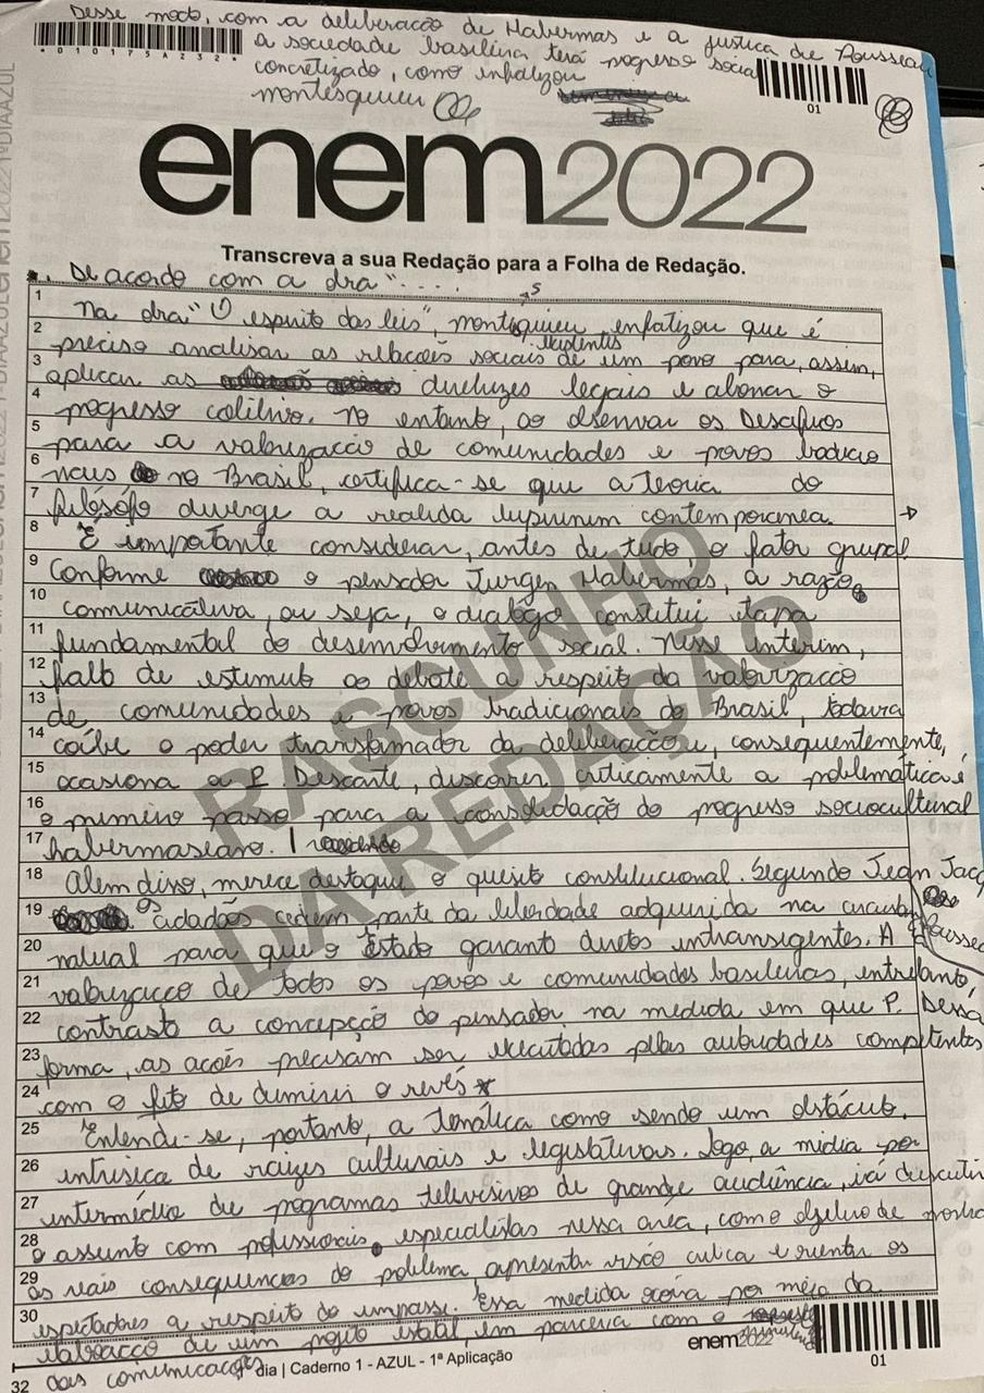 Desse modo, com a deliberação de Habermas e a justica de Rousseau
a sociedade basilina terá progresso social
concretizado, como enfatizou
montesquieu
*010175A232*
01
enem2022
Transcreva a sua Redação para a Folha de Redação.
De acordo com a obra "....
1 Na obra "O espirito das leis", montesquieu, enfatizou que é
2 preciso analisar as relações sociais existentes de um povo para, assim,
3 aplicar as diretrizes legais e alcançar o
4 progresso coletivo. No entanto, ao observar os Desafios
5 para a valorização de comunidades e povos tradicio
6 nais no Brasil, certifica-se que a Teoria do
7 filósofo diverge a realida contemporanea.
8 É importante considerar, antes de tudo, o fator grupal.
9 Conforme o pensador Jurgen Habermas, a razão
10 comunicativa, ou seja, o dialogo constitui etapa
11 fundamental do desenvolvimento social. Nesse interim,
12 falta de estimulo ao debate a respeito da valorização
13 de comunidades e povos tradicionais do Brasil, todavia
14 coíbe o poder transformador da deliberação e, consequentemente,
15 ocasiona a P. Descarte, discorrer criticamente a problemática é
16 o primeiro passo para a consolidação do progresso sociocultural
17 habermaseano.
18 Alem disso, merece destaque o quesito constitucional. Segundo Jean Jacq
19 Rousseau os cidadãos cedem parte da liberdade adquirida na
20 natural para que o Estado garanta direitos intransigentes. A
21 valorização de todos os povos e comunidades basileiras, entretanto,
22 contrasta a concepção do pensador, na medida em que P. Dessa
23 forma, as ações precisam ser executadas pelas autoridades competentes
24 com o fito de diminuir o revés
25 Entende-se, portanto, a Temática como sendo um obstáculo
26 intrisica de raizes culturais e legislativas. Logo, a midia por
27 intermédio de programas televisivos de grande audiência, irá discutir
28 o assunto com profissionais especialistas nessa area, como o objetivo de mostra
29 as reais consequencias do problema, apresentar visão critica e orientar os
30 espectadores a respeito do impasse. Essa medida ocorrerá por meio da
elaboração de um projeto estatal, em parceria com o
32 das comunicações
dia | Caderno 1 - AZUL - 1ª Aplicação
enem2022
01
RASCUNHO
DA REDAÇÃO